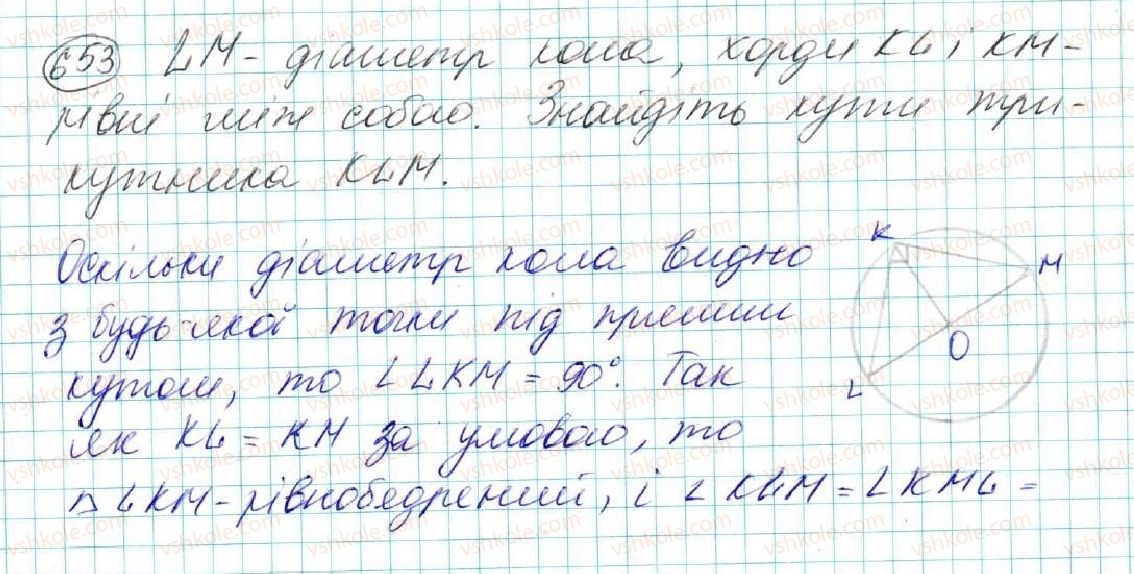 653 LM - діаметр кола, хорди KL і KM -
рівні між собою. Знайдіть кути три-
кутника KLM.
Оскільки діаметр кола видно
з будь-якої точки під прямим
кутом, то ∠LKM = 90°. Так
як KL = KM за умовою, то
△LKM - рівнобедрений, і ∠KLM = ∠KML =
K
M
O
L
vshkole.com